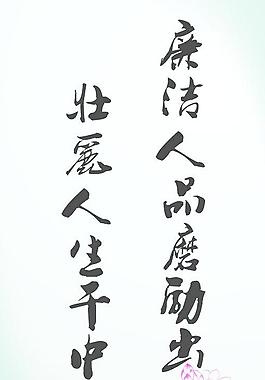 廉洁人品磨励出
壮丽人生干中